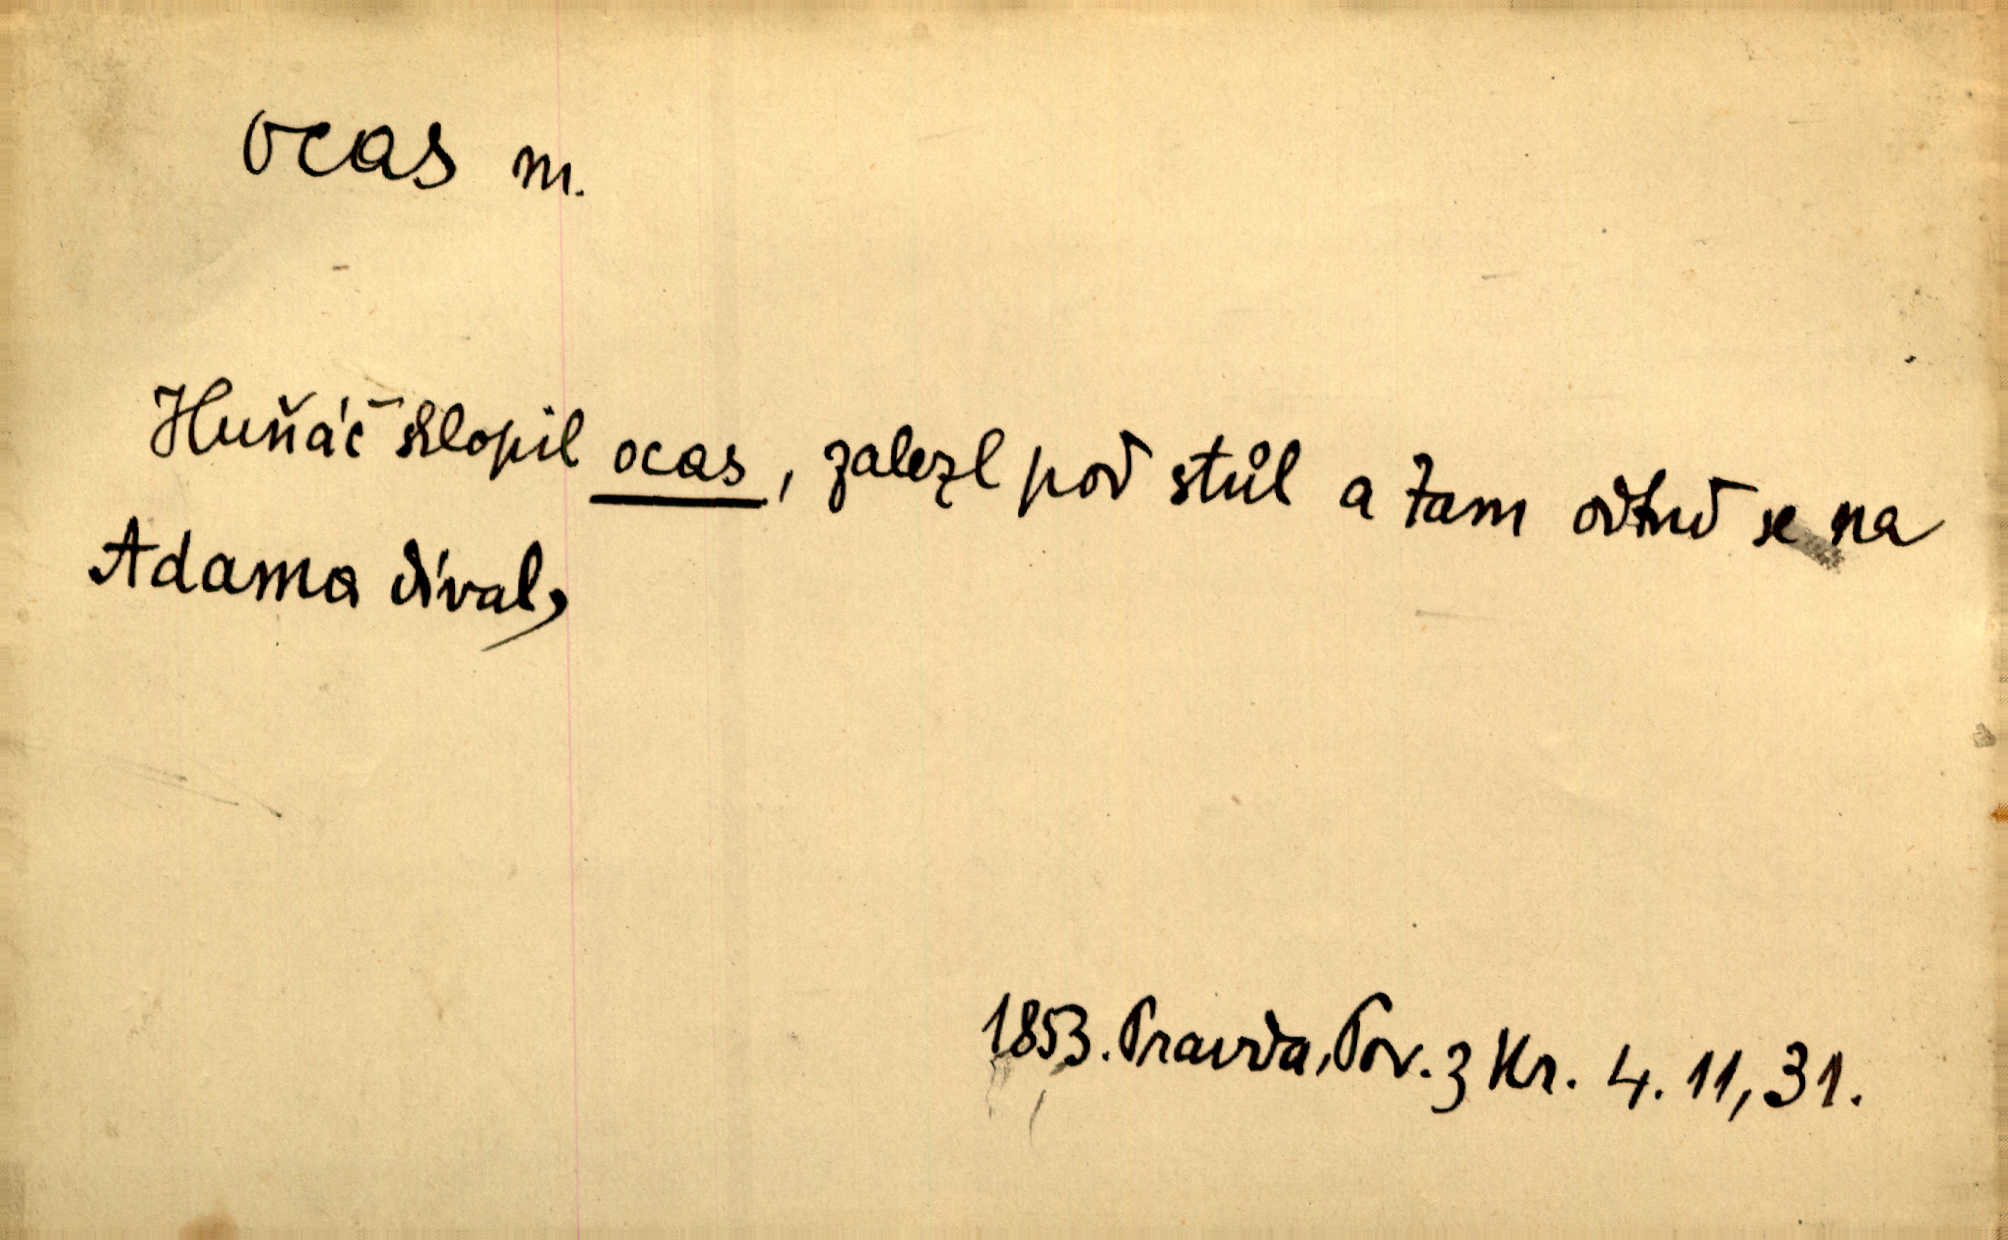 ocas m.
Huňáč sklopil ocas, zalezl pod stůl a tam odtud se na
Adama díval,
1853. Pravda, Pov. z Kr. 4. 11, 31.